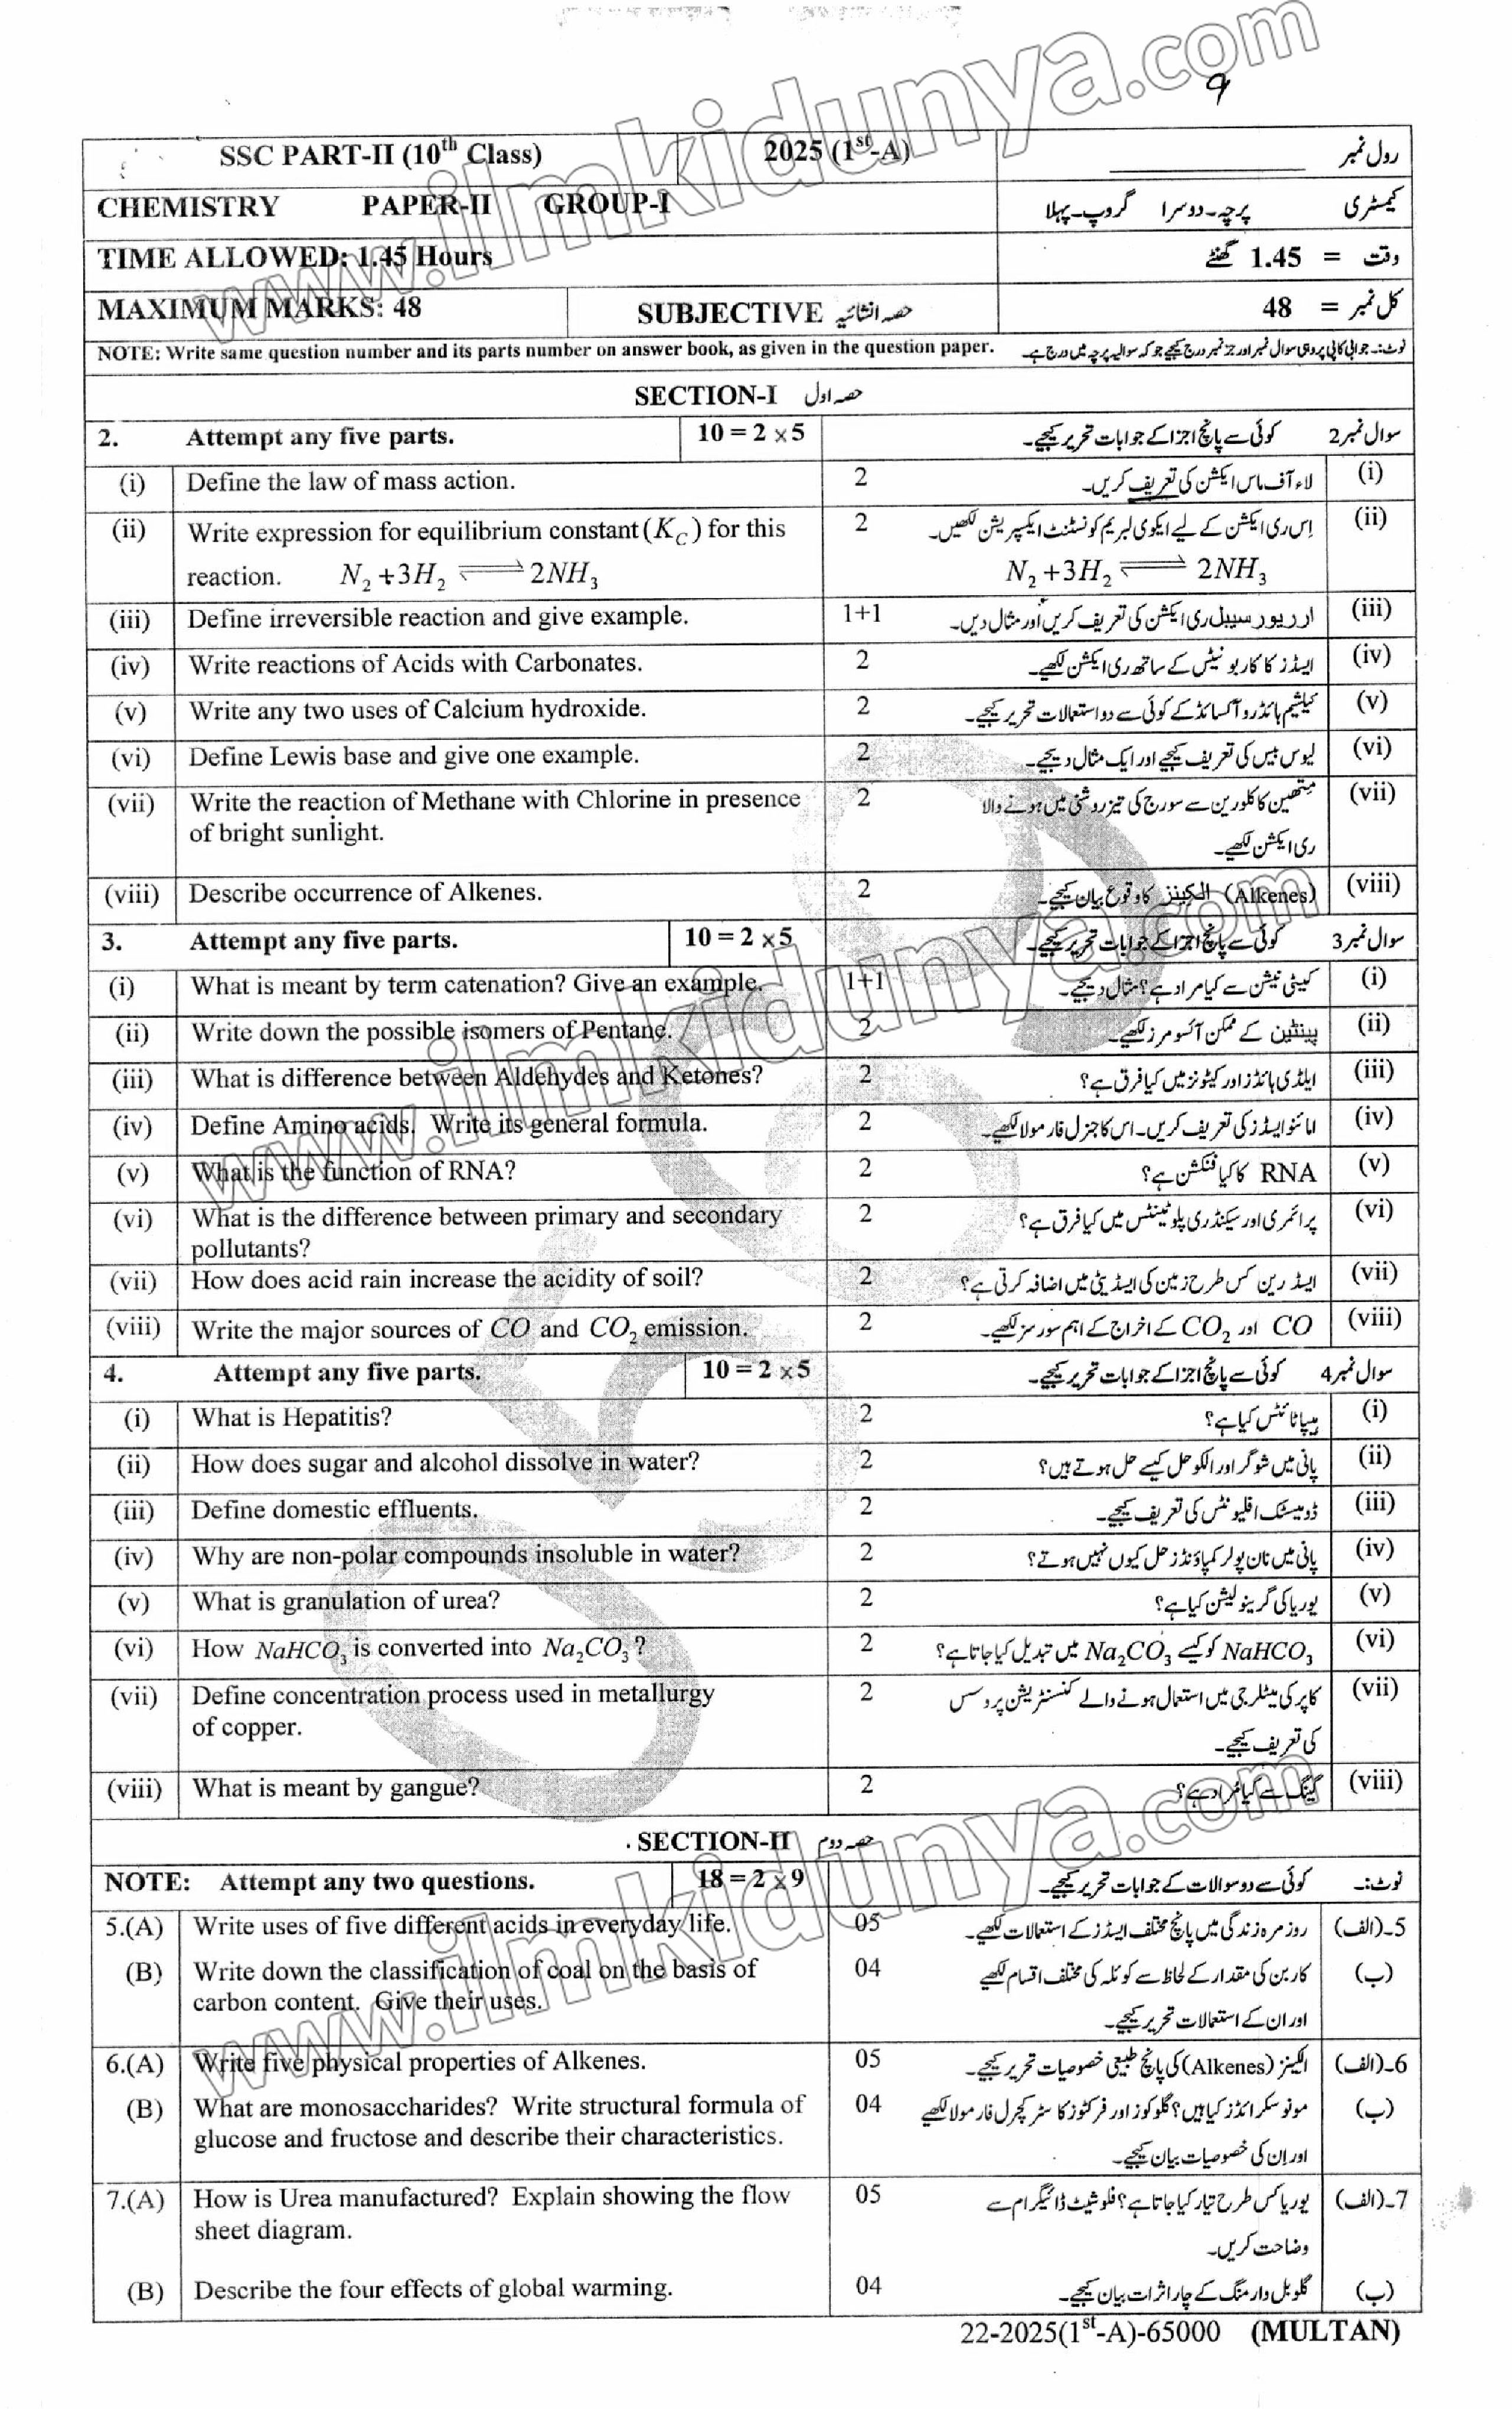 www.ilmkidunya.com
9
SSC PART-II (10th Class) 2025 (1st-A) رول نمبر ____________
CHEMISTRY PAPER-II GROUP-I کیمسٹری پرچہ۔دوسرا گروپ۔پہلا
TIME ALLOWED: 1.45 Hours وقت = 1.45 گھنٹے
MAXIMUM MARKS: 48 SUBJECTIVE حصہ انشائیہ کل نمبر = 48
NOTE: Write same question number and its parts number on answer book, as given in the question paper. نوٹ:۔ جوابی کاپی پر وہی سوال نمبر اور جز نمبر درج کیجیے جو کہ سوالیہ پرچہ میں درج ہے۔
SECTION-I حصہ اول
2. Attempt any five parts. 10 = 2 × 5 سوال نمبر 2 کوئی سے پانچ اجزا کے جوابات تحریر کیجیے۔
(i) Define the law of mass action. 2 لاء آف ماس ایکشن کی تعریف کریں۔ (i)
(ii) Write expression for equilibrium constant (KC) for this 2 اِس ری ایکشن کے لیے ایکوی لبریم کونسٹنٹ ایکسپریشن لکھیں۔ (ii)
reaction. N2 +3H2 ⇌ 2NH3 N2 +3H2 ⇌ 2NH3
(iii) Define irreversible reaction and give example. 1+1 ارریورسیبل ری ایکشن کی تعریف کریں اور مثال دیں۔ (iii)
(iv) Write reactions of Acids with Carbonates. 2 ایسڈز کا کاربونیٹس کے ساتھ ری ایکشن لکھیے۔ (iv)
(v) Write any two uses of Calcium hydroxide. 2 کیلشیم ہائڈروآکسائڈ کے کوئی سے دو استعمالات تحریر کیجیے۔ (v)
(vi) Define Lewis base and give one example. 2 لیوس بیس کی تعریف کیجیے اور ایک مثال دیجیے۔ (vi)
(vii) Write the reaction of Methane with Chlorine in presence 2 میتھین کا کلورین سے سورج کی تیز روشنی میں ہونے والا (vii)
of bright sunlight. ری ایکشن لکھیے۔
(viii) Describe occurrence of Alkenes. 2 الکینز (Alkenes) کا وقوع بیان کیجیے۔ (viii)
3. Attempt any five parts. 10 = 2 × 5 سوال نمبر 3 کوئی سے پانچ اجزا کے جوابات تحریر کیجیے۔
(i) What is meant by term catenation? Give an example. 1+1 کیٹی نیشن سے کیا مراد ہے؟ مثال دیجیے۔ (i)
(ii) Write down the possible isomers of Pentane. 2 پینٹین کے ممکن آئسومرز لکھیے۔ (ii)
(iii) What is difference between Aldehydes and Ketones? 2 ایلڈی ہائڈز اور کیٹونز میں کیا فرق ہے؟ (iii)
(iv) Define Amino acids. Write its general formula. 2 امائنو ایسڈز کی تعریف کریں۔ اس کا جنرل فارمولا لکھیے۔ (iv)
(v) What is the function of RNA? 2 RNA کا کیا فنکشن ہے؟ (v)
(vi) What is the difference between primary and secondary 2 پرائمری اور سیکنڈری پلوٹینٹس میں کیا فرق ہے؟ (vi)
pollutants?
(vii) How does acid rain increase the acidity of soil? 2 ایسڈ رین کس طرح زمین کی ایسڈیٹی میں اضافہ کرتی ہے؟ (vii)
(viii) Write the major sources of CO and CO2 emission. 2 CO اور CO2 کے اخراج کے اہم سورسز لکھیے۔ (viii)
4. Attempt any five parts. 10 = 2 × 5 سوال نمبر 4 کوئی سے پانچ اجزا کے جوابات تحریر کیجیے۔
(i) What is Hepatitis? 2 ہیپاٹائٹس کیا ہے؟ (i)
(ii) How does sugar and alcohol dissolve in water? 2 پانی میں شوگر اور الکوحل کیسے حل ہوتے ہیں؟ (ii)
(iii) Define domestic effluents. 2 ڈومیسٹک افلیونٹس کی تعریف کیجیے۔ (iii)
(iv) Why are non-polar compounds insoluble in water? 2 پانی میں نان پولر کمپاؤنڈز حل کیوں نہیں ہوتے؟ (iv)
(v) What is granulation of urea? 2 یوریا کی گرینولیشن کیا ہے؟ (v)
(vi) How NaHCO3 is converted into Na2CO3? 2 NaHCO3 کو کیسے Na2CO3 میں تبدیل کیا جاتا ہے؟ (vi)
(vii) Define concentration process used in metallurgy 2 کاپر کی میٹلرجی میں استعمال ہونے والے کنسنٹریشن پروسس (vii)
of copper. کی تعریف کیجیے۔
(viii) What is meant by gangue? 2 گینگ سے کیا مُراد ہے؟ (viii)
SECTION-II حصہ دوم
NOTE: Attempt any two questions. 18 = 2 × 9 نوٹ:۔ کوئی سے دو سوالات کے جوابات تحریر کیجیے۔
5.(A) Write uses of five different acids in everyday life. 05 روزمرہ زندگی میں پانچ مختلف ایسڈز کے استعمالات لکھیے۔ 5۔(الف)
(B) Write down the classification of coal on the basis of 04 کاربن کی مقدار کے لحاظ سے کوئلہ کی مختلف اقسام لکھیے (ب)
carbon content. Give their uses. اور ان کے استعمالات تحریر کیجیے۔
6.(A) Write five physical properties of Alkenes. 05 الکینز (Alkenes) کی پانچ طبیعی خصوصیات تحریر کیجیے۔ 6۔(الف)
(B) What are monosaccharides? Write structural formula of 04 مونوسکرائڈز کیا ہیں؟ گلوکوز اور فرکٹوز کا سٹرکچرل فارمولا لکھیے (ب)
glucose and fructose and describe their characteristics. اور ان کی خصوصیات بیان کیجیے۔
7.(A) How is Urea manufactured? Explain showing the flow 05 یوریا کس طرح تیار کیا جاتا ہے؟ فلو شیٹ ڈائیگرام سے 7۔(الف)
sheet diagram. وضاحت کریں۔
(B) Describe the four effects of global warming. 04 گلوبل وارمنگ کے چار اثرات بیان کیجیے۔ (ب)
22-2025(1st-A)-65000 (MULTAN)
www.ilmkidunya.com
www.ilmkidunya.com